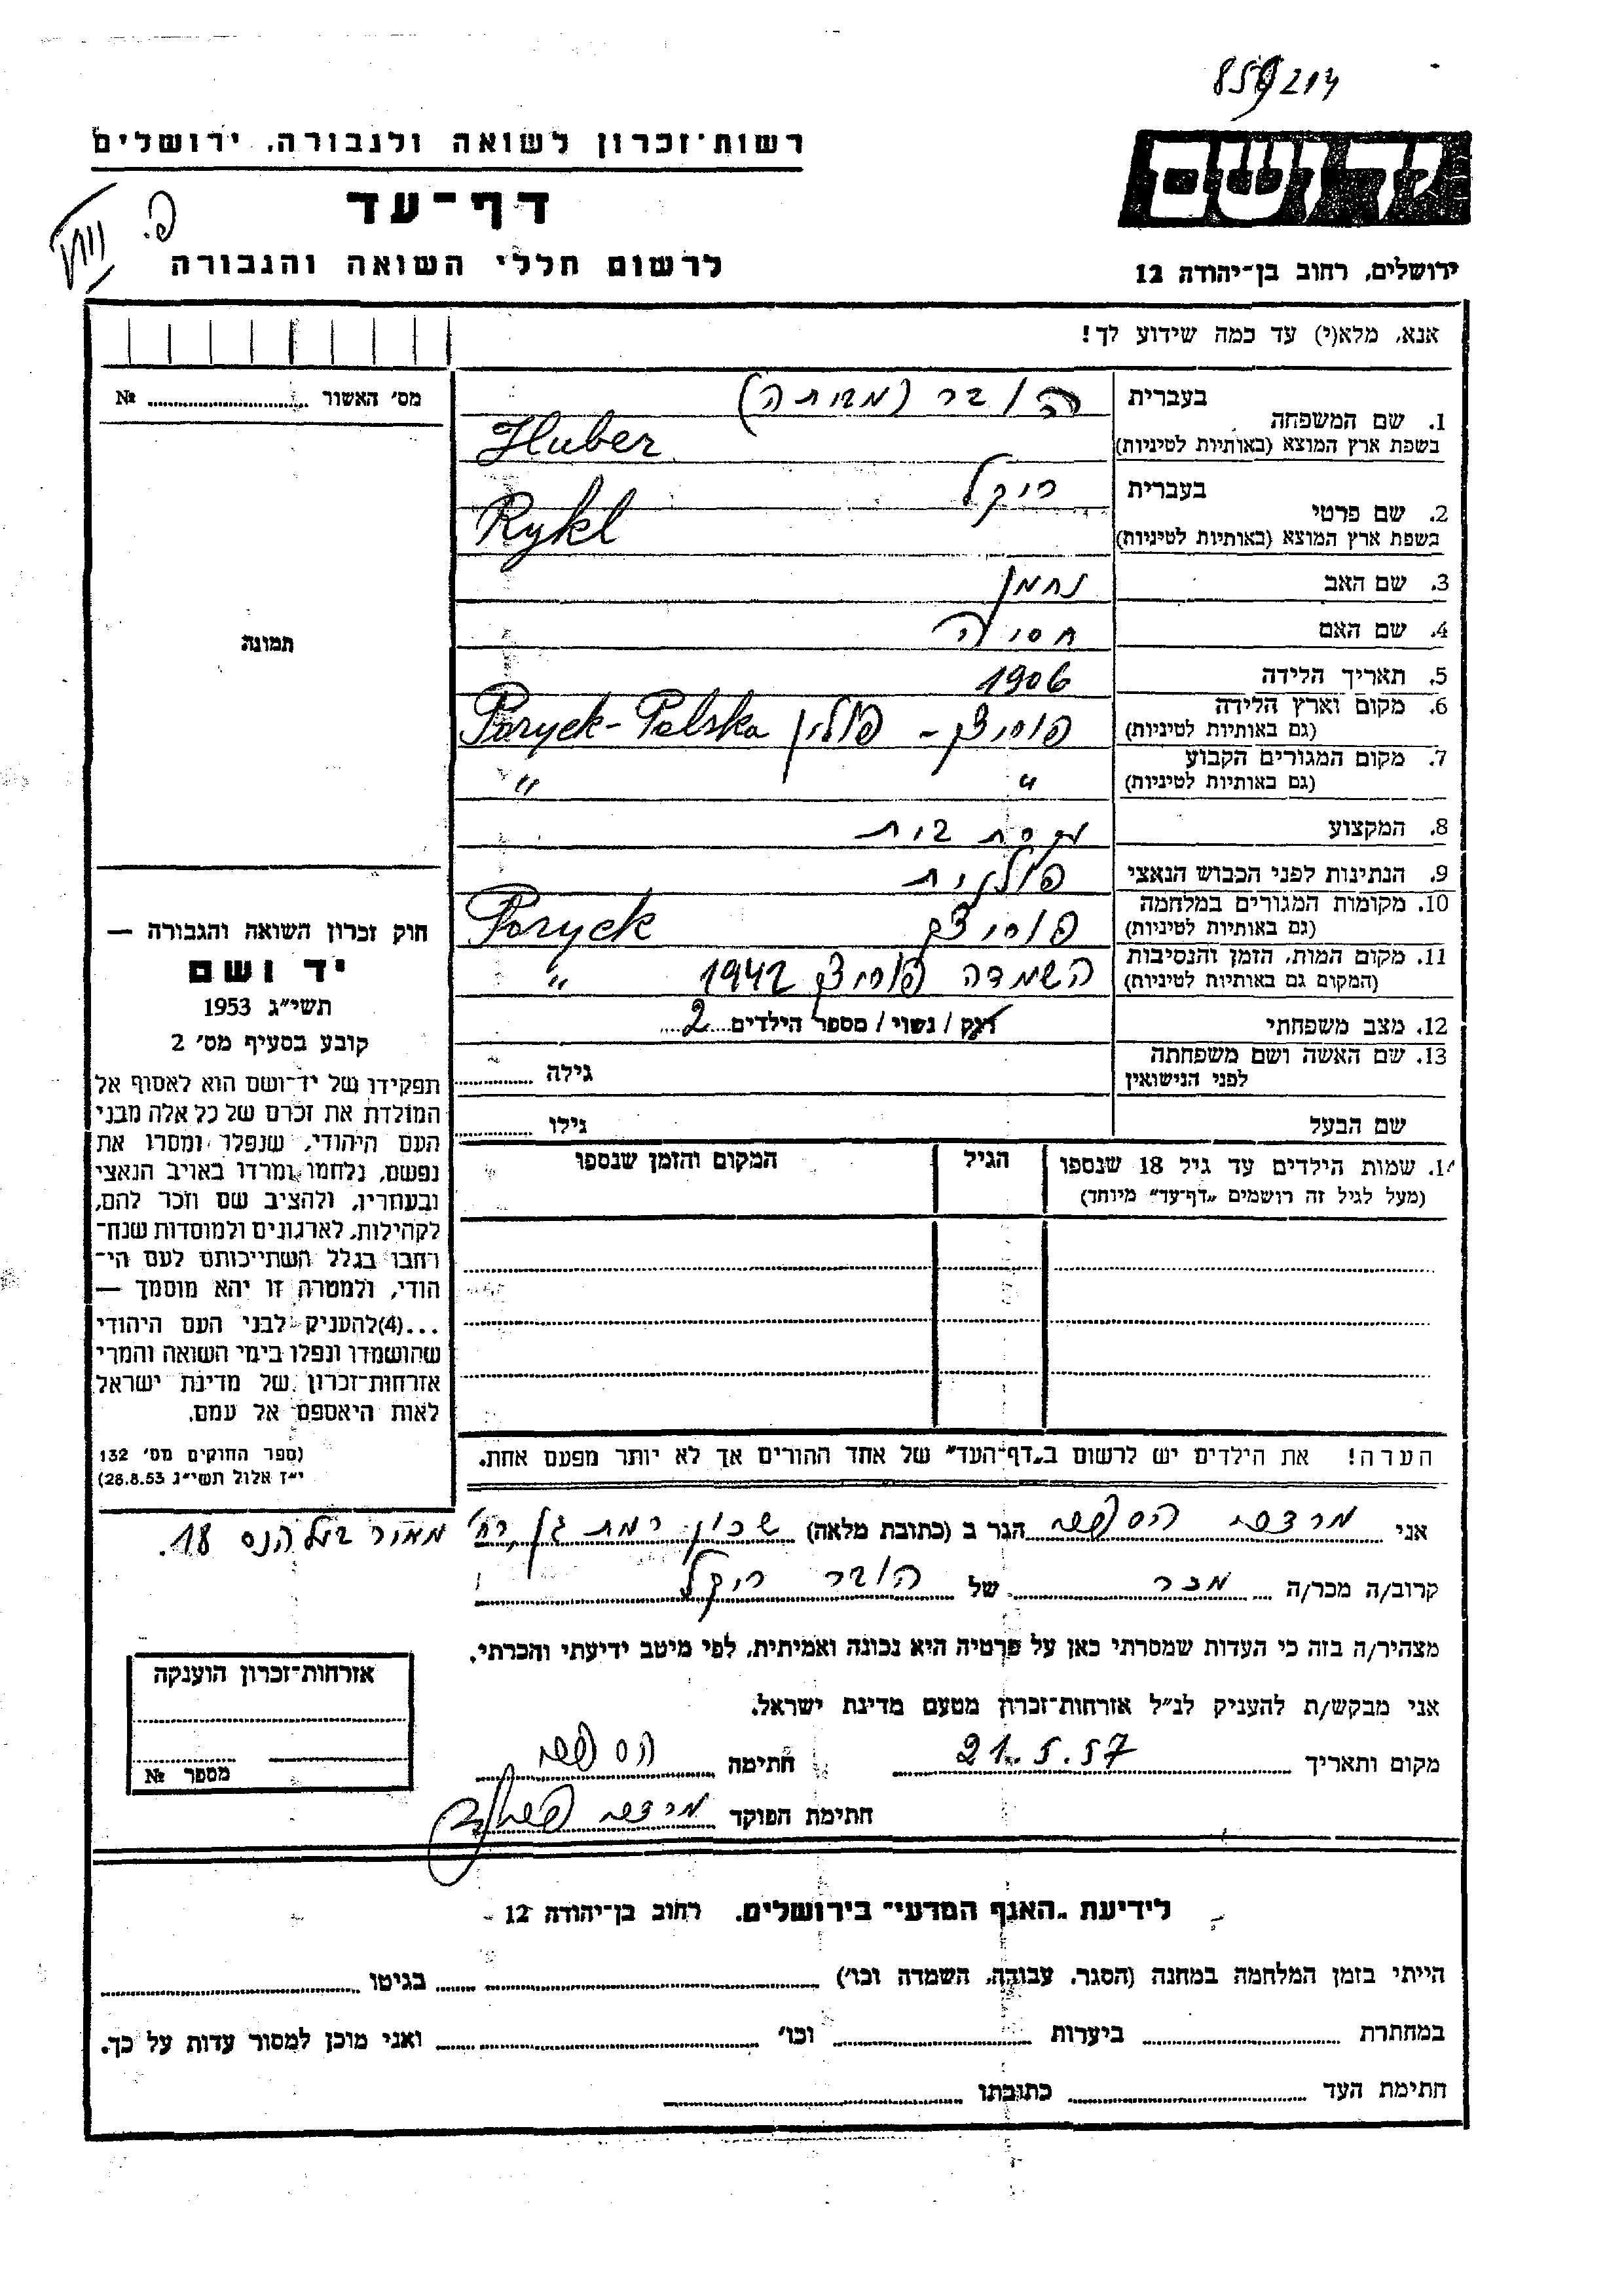 859214
רשות־זכרון לשואה ולגבורה, ירושלים
ידושם
דף־עד
לרשום חללי השואה והגבורה
ירושלים, רחוב בן־יהודה 12
אנא, מלא(י) עד כמה שידוע לך!
מס׳ האשור ........ №
תמונה
בעברית הובר
1. שם המשפחה
בשפת ארץ המוצא (באותיות לטיניות) Huber
בעברית ריקל
2. שם פרטי
בשפת ארץ המוצא (באותיות לטיניות) Rykl
3. שם האב נחמן
4. שם האם חסיה
5. תאריך הלידה 1906
6. מקום וארץ הלידה פוריצק - פולין Poryck-Polska
(גם באותיות לטיניות)
7. מקום המגורים הקבוע
(גם באותיות לטיניות) " "
8. המקצוע עקרת בית
9. הנתינות לפני הכבוש הנאצי פולנית
10. מקומות המגורים במלחמה
(גם באותיות לטיניות) פוריצק Poryck
11. מקום המות, הזמן והנסיבות
(המקום גם באותיות לטיניות) השמדה פוריצק 1942 "
12. מצב משפחתי רוק / נשוי / מספר הילדים....2....
13. שם האשה ושם משפחתה
לפני הנישואין גילה ........
שם הבעל גילו ........
14. שמות הילדים עד גיל 18 שנספו הגיל המקום והזמן שנספו
(מעל לגיל זה רושמים „דף־עד״ מיוחד)
הערה! את הילדים יש לרשום ב„דף־העד״ של אחד ההורים אך לא יותר מפעם אחת.
חוק זכרון השואה והגבורה —
יד ושם
תשי״ג 1953
קובע בסעיף מס׳ 2
תפקידו של יד־ושם הוא לאסוף אל
המולדת את זכרם של כל אלה מבני
העם היהודי, שנפלו ומסרו את
נפשם, נלחמו ומרדו באויב הנאצי
ובעוזריו, ולהציב שם וזכר להם,
לקהילות, לארגונים ולמוסדות שנח־
רבו בגלל השתייכותם לעם הי־
הודי, ולמטרה זו יהא מוסמך —
...(4)להעניק לבני העם היהודי
שהושמדו ונפלו בימי השואה והמרי
אזרחות־זכרון של מדינת ישראל
לאות היאספם אל עמם.
(ספר החוקים מס׳ 132
י״ז אלול תשי״ג 28.8.53)
אני מרדכי הגר ב (כתובת מלאה) שכון רמת גן, רח׳ 18.
קרוב/ה מכר/ה מכר של הובר ריקל
מצהיר/ה בזה כי העדות שמסרתי כאן על פרטיה היא נכונה ואמיתית, לפי מיטב ידיעתי והכרתי.
אני מבקש/ת להעניק לנ״ל אזרחות־זכרון מטעם מדינת ישראל.
מקום ותאריך 21.5.57 חתימה
חתימת הפוקד
אזרחות־זכרון הוענקה
מספר №
לידיעת „האגף המדעי״ בירושלים, רחוב בן־יהודה 12
הייתי בזמן המלחמה במחנה (הסגר, עבודה, השמדה וכו׳) ........ בגיטו ........
במחתרת ........ ביערות ........ וכו׳ ........ ואני מוכן למסור עדות על כך.
חתימת העד ........ כתובתו ........